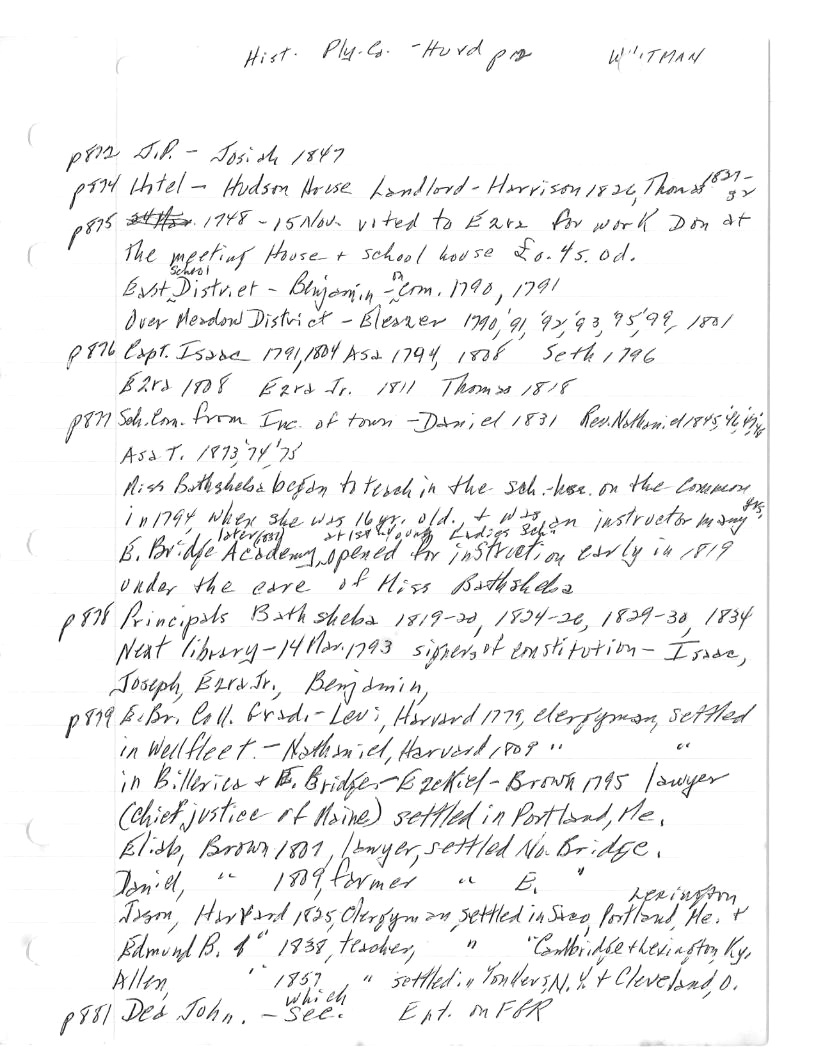 Hist. Ply. Co. - Hurd p 2 WHITMAN
p872 J.P. - Josiah 1847
p874 Hotel - Hudson House Landlord - Harrison 1826, Thomas 1827-32
p875 24 Mar. 1748 - 15 Nov. voted to Ezra for work Don at
the meeting House + school house £0. 45. 0d.
East School District - Benjamin - on Com. 1790, 1791
Over Meadow District - Eleazer 1790, '91, '92, '93, '95, '99, 1801
p876 Capt. Isaac 1791, 1804 Asa 1794, 1808 Seth 1796
Ezra 1808 Ezra Jr. 1811 Thomas 1818
p877 Sch. Com. from Inc. of town - Daniel 1831 Rev. Nathaniel 1845, '46, '47, '48
Asa T. 1873, '74, '75
Miss Bathsheba began to teach in the sch.-hse. on the Common
in 1794, when she was 16 yr. old., + was an instructor many yrs.
later (1837) at 1st Young Ladies Sch.
E. Bridge Academy, opened for instruction early in 1819
under the care of Miss Bathsheba
p878 Principals Bathsheba 1819-20, 1824-26, 1829-30, 1834
Next library - 14 Mar. 1793 signers of constitution - Isaac,
Joseph, Ezra Jr., Benjamin,
p879 E. Br. Coll. Grad. - Levi, Harvard 1779, clergyman, settled
in Wellfleet. - Nathaniel, Harvard 1809 " "
in Billerica + E. Bridge - Ezekiel - Brown 1795 lawyer
(chief justice of Maine) settled in Portland, Me.
Eliab, Brown 1807, lawyer, settled No. Bridge.
Daniel, " 1809, farmer " E. "
Jason, Harvard 1825, Clergyman, settled in Saco, Portland, Me. + Lexington
Edmund B. " 1838, teacher, " " Cambridge + Lexington, Ky.
Allen, " 1857 " settled in Yonkers, N.Y. + Cleveland, O.
p881 Dea John. - which see. Ent. on FGR